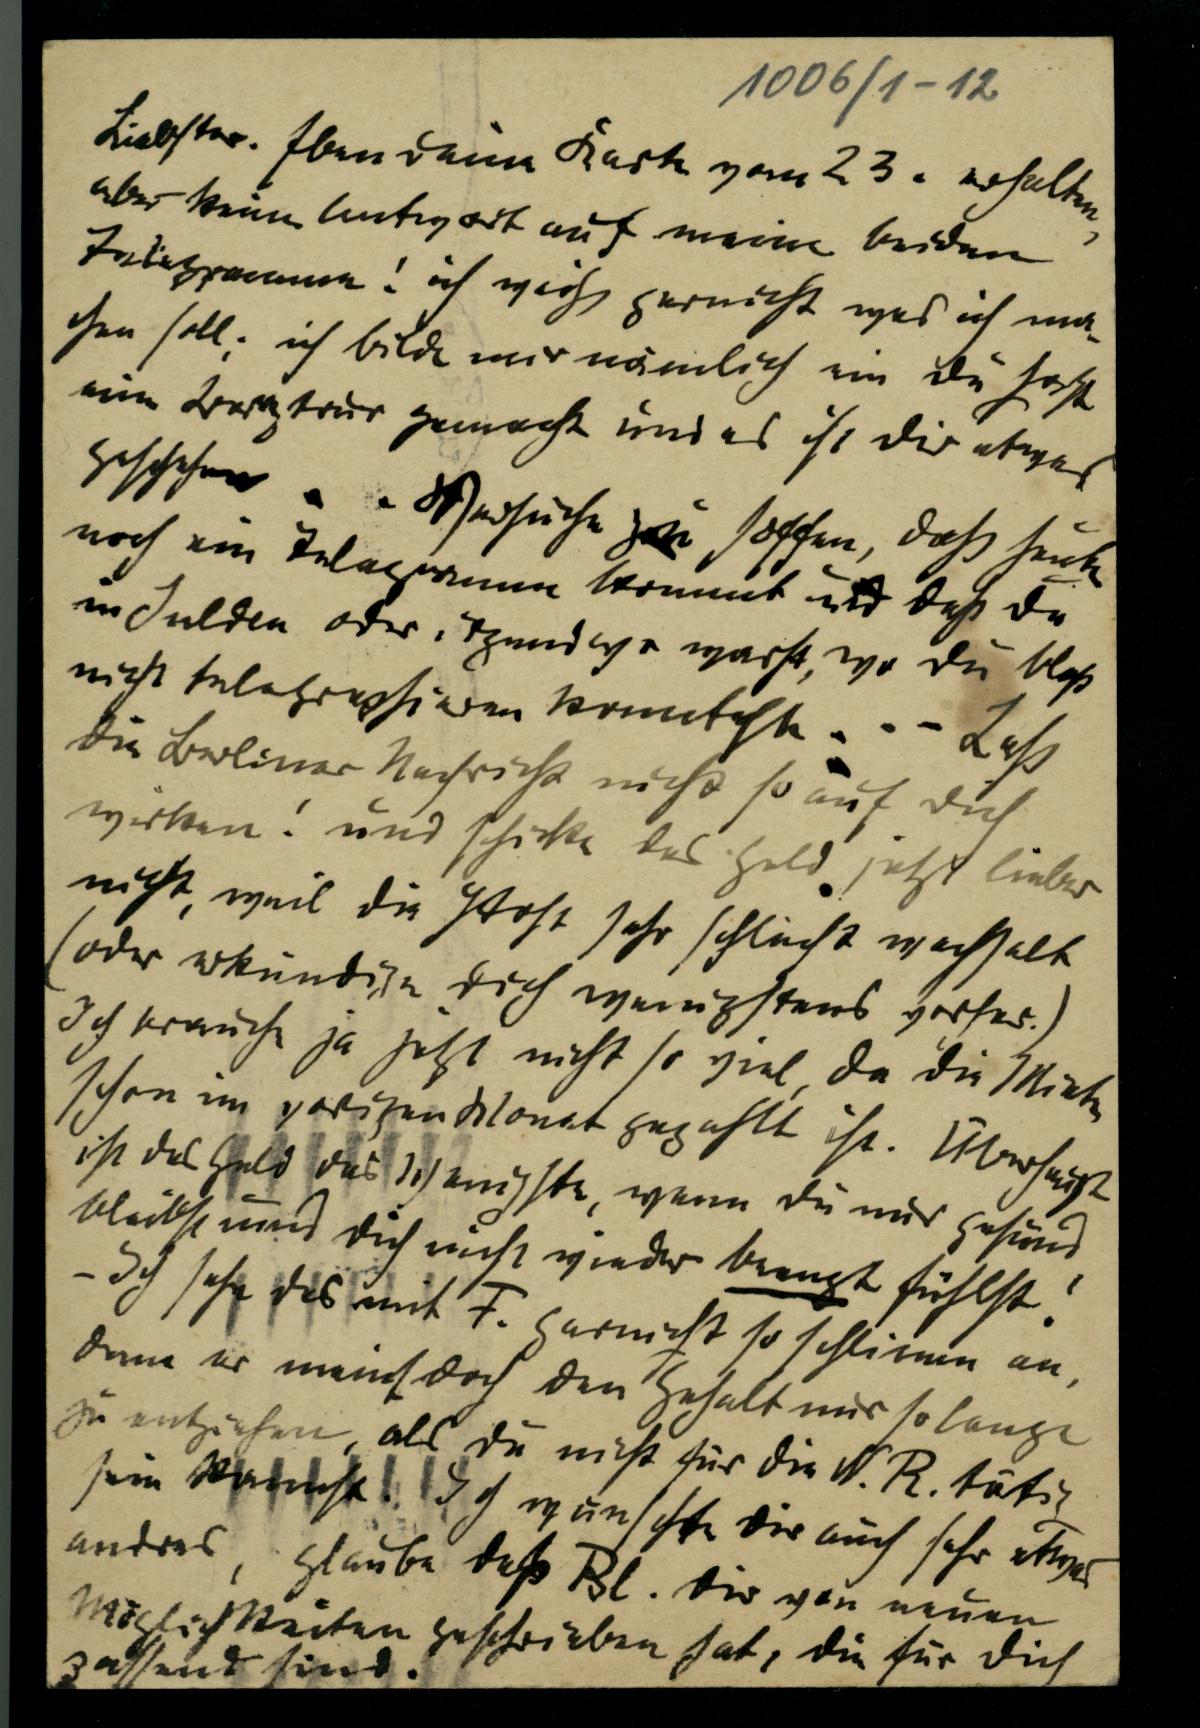 1006/1-12
Liebster. Eben deine Karte vom 23. erhalten,
aber keine Antwort auf meine beiden
Telegramme! ich weiß garnicht was ich ma-
chen soll; ich bilde mir nämlich ein du hast
eine Bergtour gemacht und es ist dir etwas
geschehen . . Versuche zu hoffen, daß heute
noch ein Telegramm kommt und daß du
in Sulden oder irgendwo warst, wo du bloß
nicht telegraphieren konntest . . - Laß
die Berliner Nachricht nicht so auf dich
wirken! und schicke das Geld jetzt lieber
nicht, weil die Post sehr schlecht wechselt
(oder erkundige dich wenigstens vorher.)
Ich brauche ja jetzt nicht so viel, da die Miete
schon im vorigen Monat gezahlt ist. Überhaupt
ist das Geld das Wenigste, wenn du nur gesund
bleibst und dich nicht wieder beengt fühlst!
- Ich sehe das mit F. garnicht so schlimm an,
denn er meint doch den Gehalt nur so lange
zu entziehen, als du nicht für die N.R. tätig
sein kannst! Ich wünschte dir auch sehr etwas
andres, glaube daß Bl. dir von neuen
Möglichkeiten geschrieben hat, die für dich
passend sind.